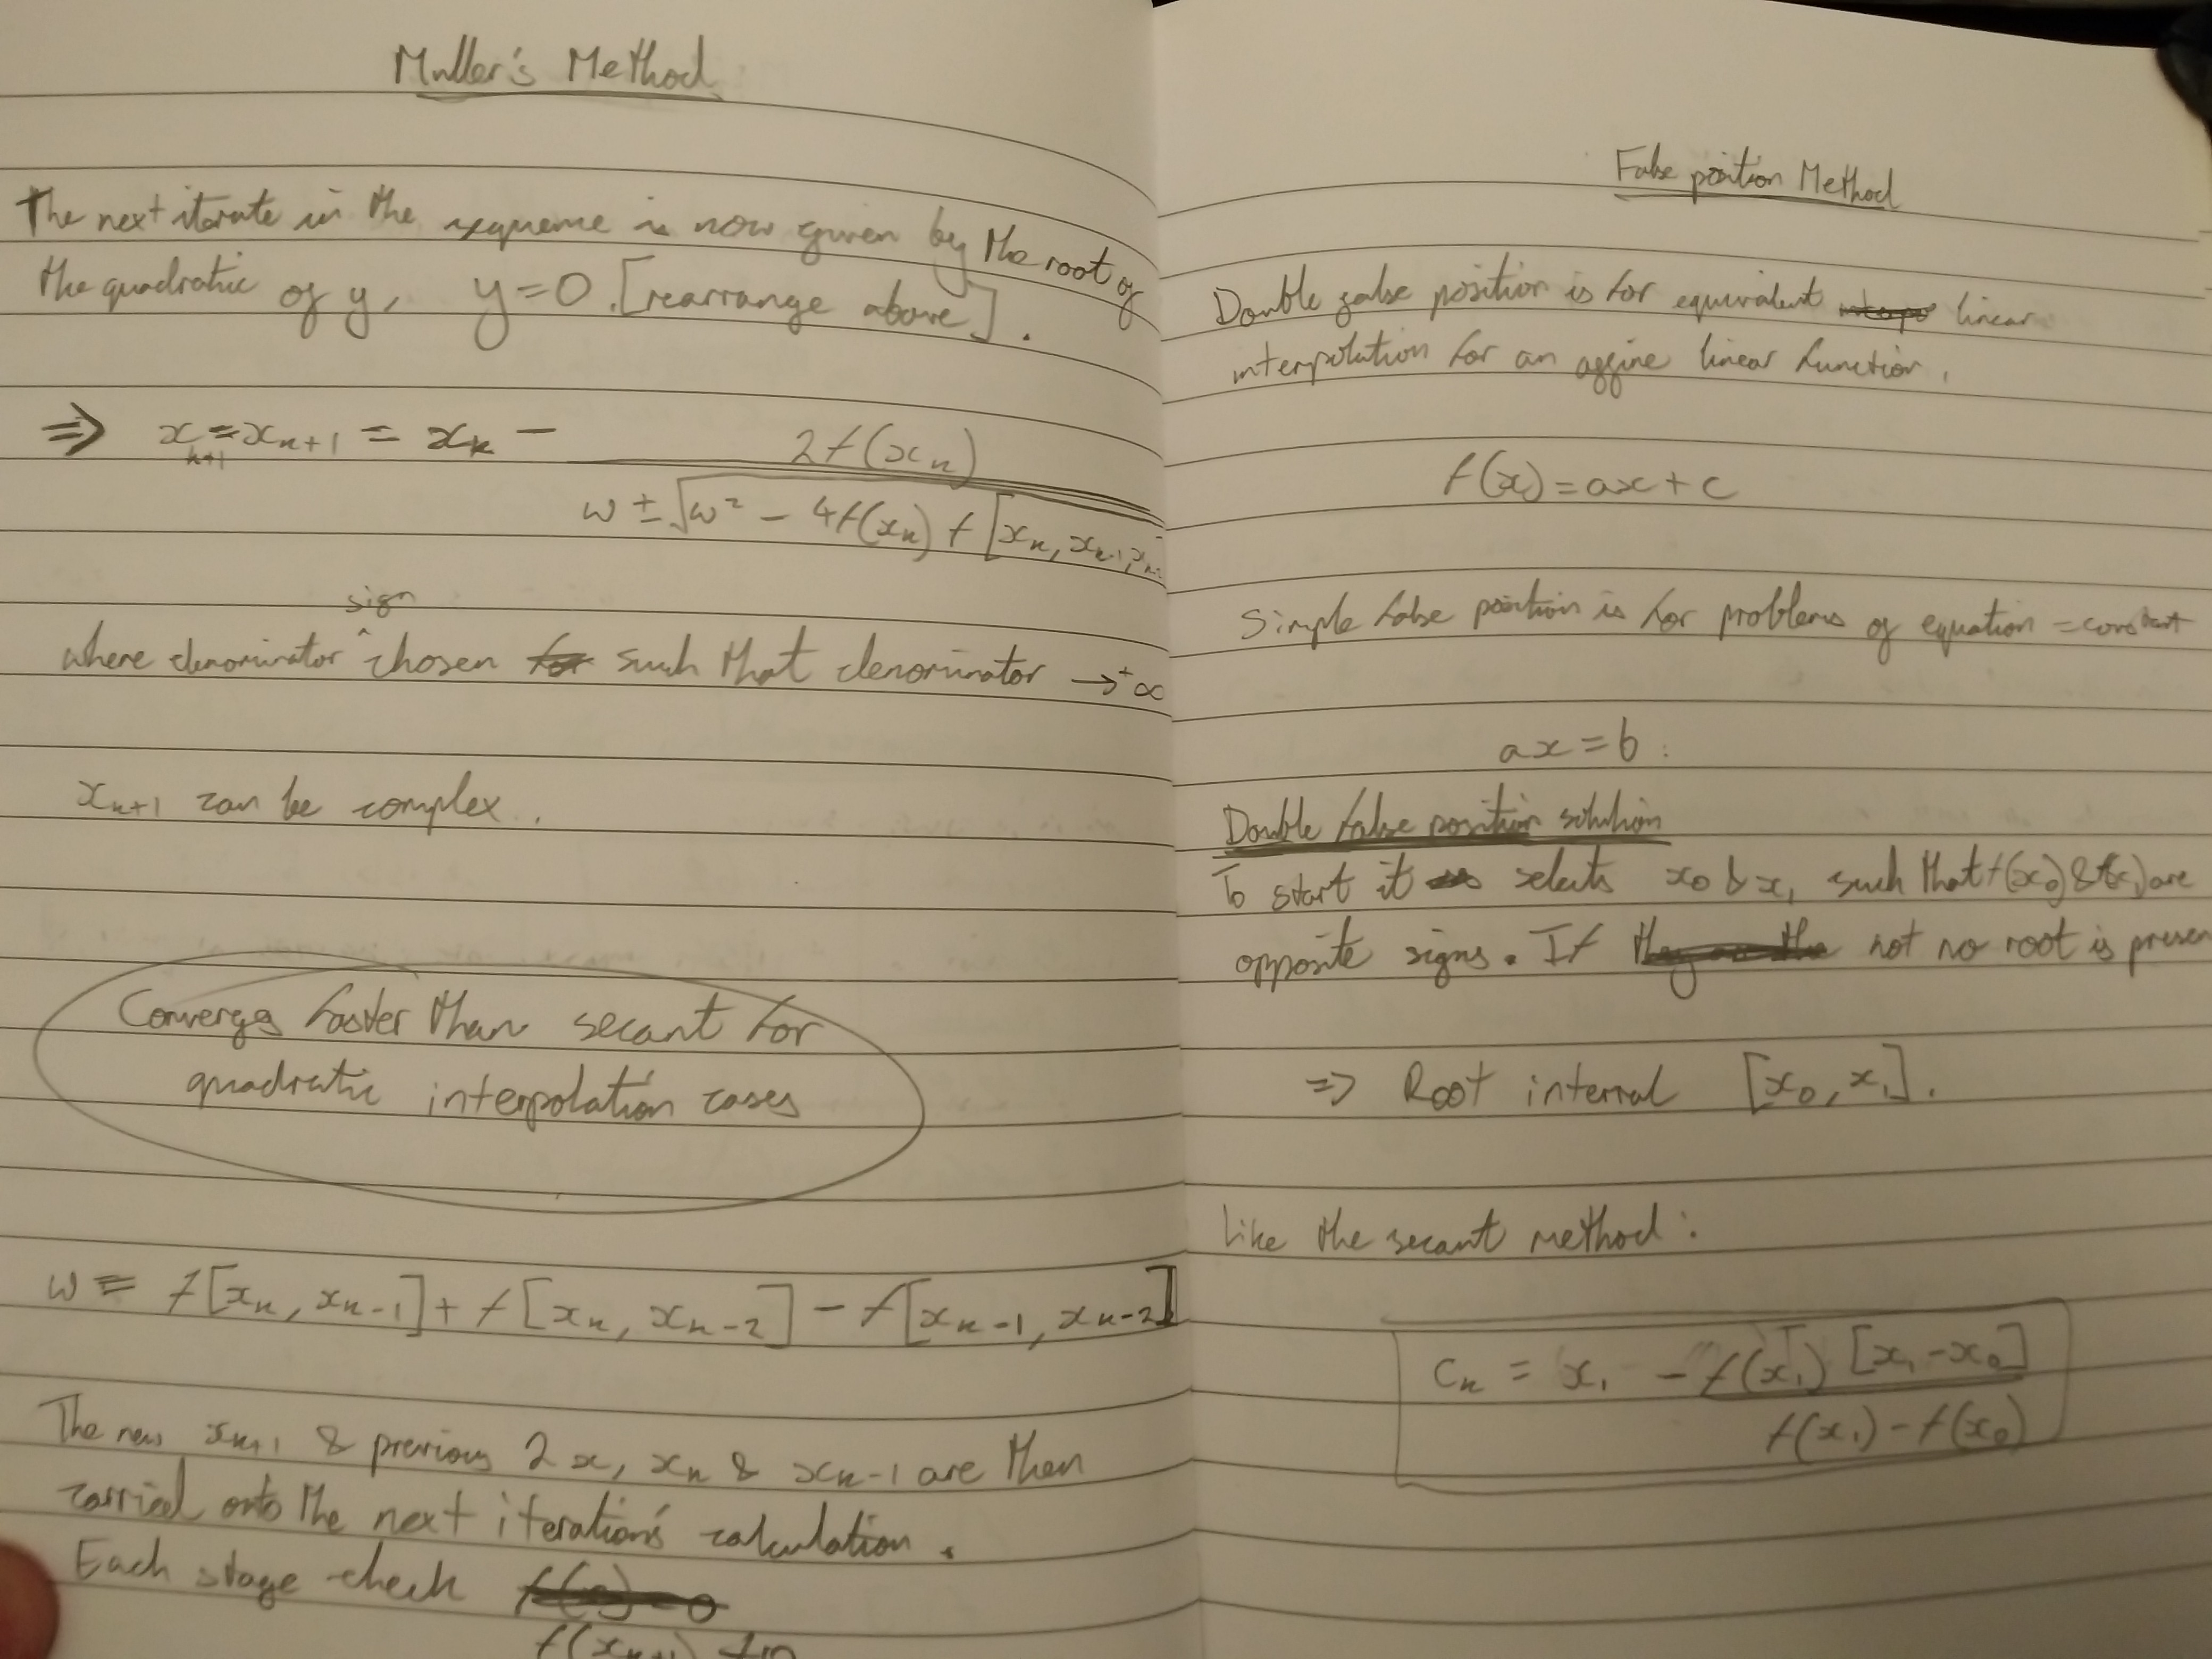 Muller's Method
The next iterate in the sequence is now given by the root of
the quadratic of y, y=0. [rearrange above].
⇒ x_{n+1} = x_{n+1} = x_n − 2f(x_n)
w ± √w² − 4f(x_n) f[x_n, x_{n-1}, x_{n-2}
sign
where denominator ^ chosen such that denominator →⁺∞
x_{n+1} can be complex.
Converges faster than secant for
quadratic interpolation cases
w = f[x_n, x_{n-1}] + f[x_n, x_{n-2}] − f[x_{n-1}, x_{n-2}]
The new x_{n+1} & previous 2 x, x_n & x_{n-1} are then
carried onto the next iteration's calculation.
Each stage check
f(x_{n+1})
False position Method
Double false position is for equivalent linear
interpolation for an affine linear function.
f(x) = ax + c
Simple false position is for problems of equation = constant
ax = b :
Double false position solution
To start it selects x₀ & x₁ such that f(x₀) & f(x₁) are
opposite signs. If not no root is presen
⇒ Root interval [x₀, x₁].
Like the secant method:
C_n = x₁ − f(x₁) [x₁ − x₀]
f(x₁) − f(x₀)